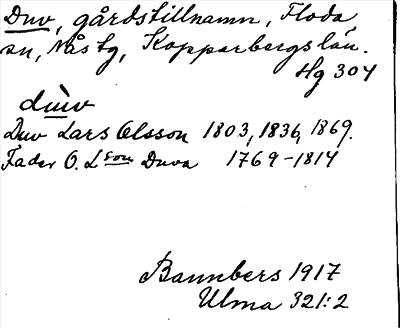 Duv, gårdstillnamn, Floda
sn, Nås tg, Kopparbergs län.
Hg 304
dùv
Duv Lars Olsson 1803, 1836, 1869.
Fader O. Lson Duva 1769-1814
Bannbers 1917
Ulma 321:2